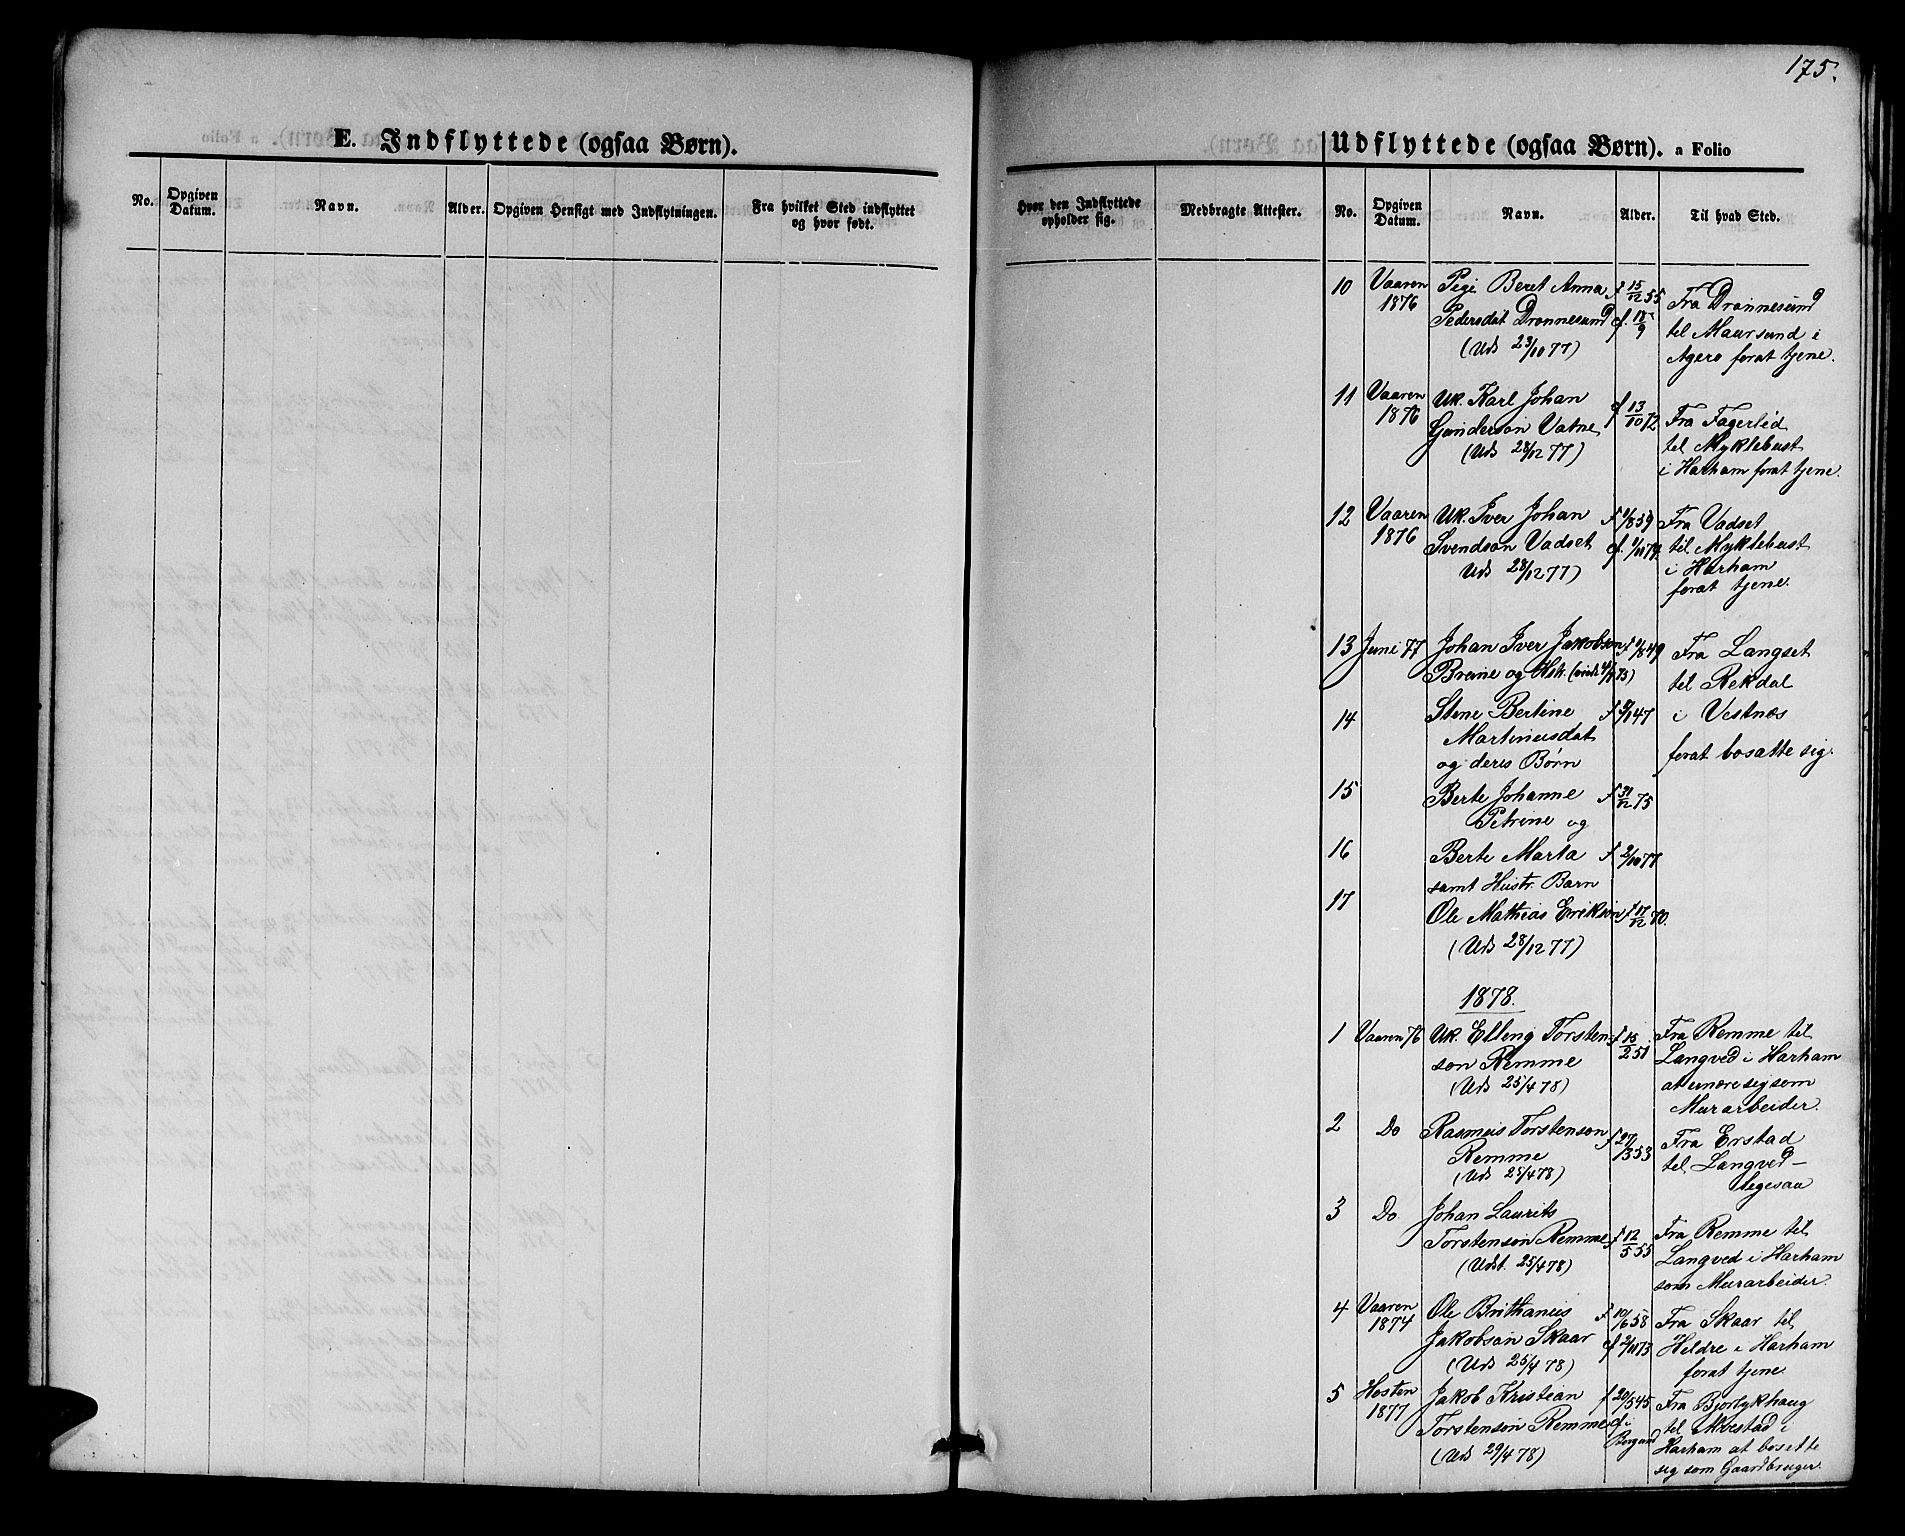 175.
E. Indflyttede (ogsaa Børn).
No.
Opgiven Datum.
Navn.
Alder.
Opgiven Hensigt med Indflytningen.
Fra hvilket Sted indflyttet og hvor født.
Udflyttede (ogsaa Børn). a Folio
Hvor den Indflyttede opholder sig.
Medbragte Attester.
No.
Opgiven Datum.
Navn.
Alder.
Til hvad Sted.
10 Vaaren Pige Beret Anna f 15/12 55 Fra Drønnesund
1876 Pedersdat Drønnesund cf. 18/9 til Maursund i
(Uds 23/10 77) Agerø forat tjene.
11 Vaaren Uk. Karl Johan cf 13/10 72 Fra Fagerlid
1876 Gunderson Vatne til Myklebust
(Uds 28/12 77) i Harham forat tjene.
12 Vaaren Uk. Iver Johan f 1/8 59 Fra Vadset
1876 Svendson Vadset cf. 1/11 74 til Myklebust
Uds 28/12 77) i Harham
forat tjene.
13 Juni 77 Johan Iver Jakobson f 1/8 49 Fra Langset
Breine og Hstr. til Rekdal
14 Stine Bertine f 3/1 47 i Vestnæs
Martinusdat forat bosætte sig.
og deres Børn
15 Berte Johanne f 31/12 75
Petrine og
16 Berte Marta f 2/10 77
samt Hustr. Barn
17 Ole Mathias Erikson f 17/12 70.
(Uds 28/12 77)
1878.
1 Vaaren 76 Uk. Elling Torsten f 15/2 51 Fra Remme til
son Remme Langved i Harham
(Uds 25/4 78) at nære sig som
Murarbeider.
2 Do Rasmus Torstenson f 27/3 53 Fra Erstad
Remme til Langved
(Uds 25/4 78) ligesaa
3 Do Johan Laurits
Torstenson Remme f 12/5 55 Fra Remme til
(Udst. 25/4 78) Langved i Harham
som Murarbeider.
4 Vaaren Ole Brithanius f 10/6 58 Fra Skaar til
1874 Jakobson Skaar cf 2/11 73 Heldre i Harham
(Uds 25/4 78) forat tjene
5 Høsten Jakob Kristian f 20/5 45 Fra Bjørlykhaug
1877 Torstenson Remme cf i Borgund til i
(Uds 29/4 78) Harham at bosætte
sig som Gaardbruger.